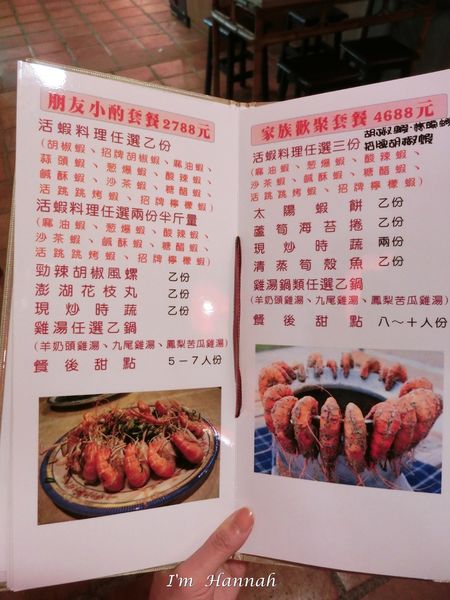 朋友小酌套餐 2788元
活蝦料理任選乙份
(胡椒蝦、招牌胡椒蝦、麻油蝦、
蒜頭蝦、蔥爆蝦、酸辣蝦、
鹹酥蝦、沙茶蝦、糖醋蝦、
活跳跳烤蝦、招牌檸檬蝦)
活蝦料理任選兩份半斤量
(麻油蝦、蔥爆蝦、酸辣蝦、
沙茶蝦、鹹酥蝦、糖醋蝦、
活跳跳烤蝦、招牌檸檬蝦)
勁辣胡椒風螺 乙份
澎湖花枝丸 乙份
現炒時蔬 乙份
雞湯任選乙鍋
(羊奶頭雞湯、九尾雞湯、鳳梨苦瓜雞湯)
餐後甜點 5－7人份
家族歡聚套餐 4688元
活蝦料理任選三份
胡椒蝦
招牌胡椒蝦
沙茶蝦、鹹酥蝦、糖醋蝦、
活跳跳烤蝦、招牌檸檬蝦)
太陽蝦餅 乙份
蘆筍海苔捲 乙份
現炒時蔬 兩份
清蒸筍殼魚 乙份
雞湯鍋類任選乙鍋
(羊奶頭雞湯、九尾雞湯、鳳梨苦瓜雞湯)
餐後甜點 八～十人份
I'm Hannah